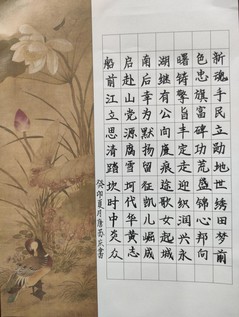 船启南湖曙色新
前赴后继铸忠魂
江山幸有擎旗手
立党为公昌富民
思源默向丰碑立
清腐扬廉定功勋
踏雪留痕走荒地
坎坷征途迎盛世
时代凯歌织锦绣
中华儿女润心田
炎黄崛起兴邦梦
众志成城永向前
癸卯夏月唐苏庆书